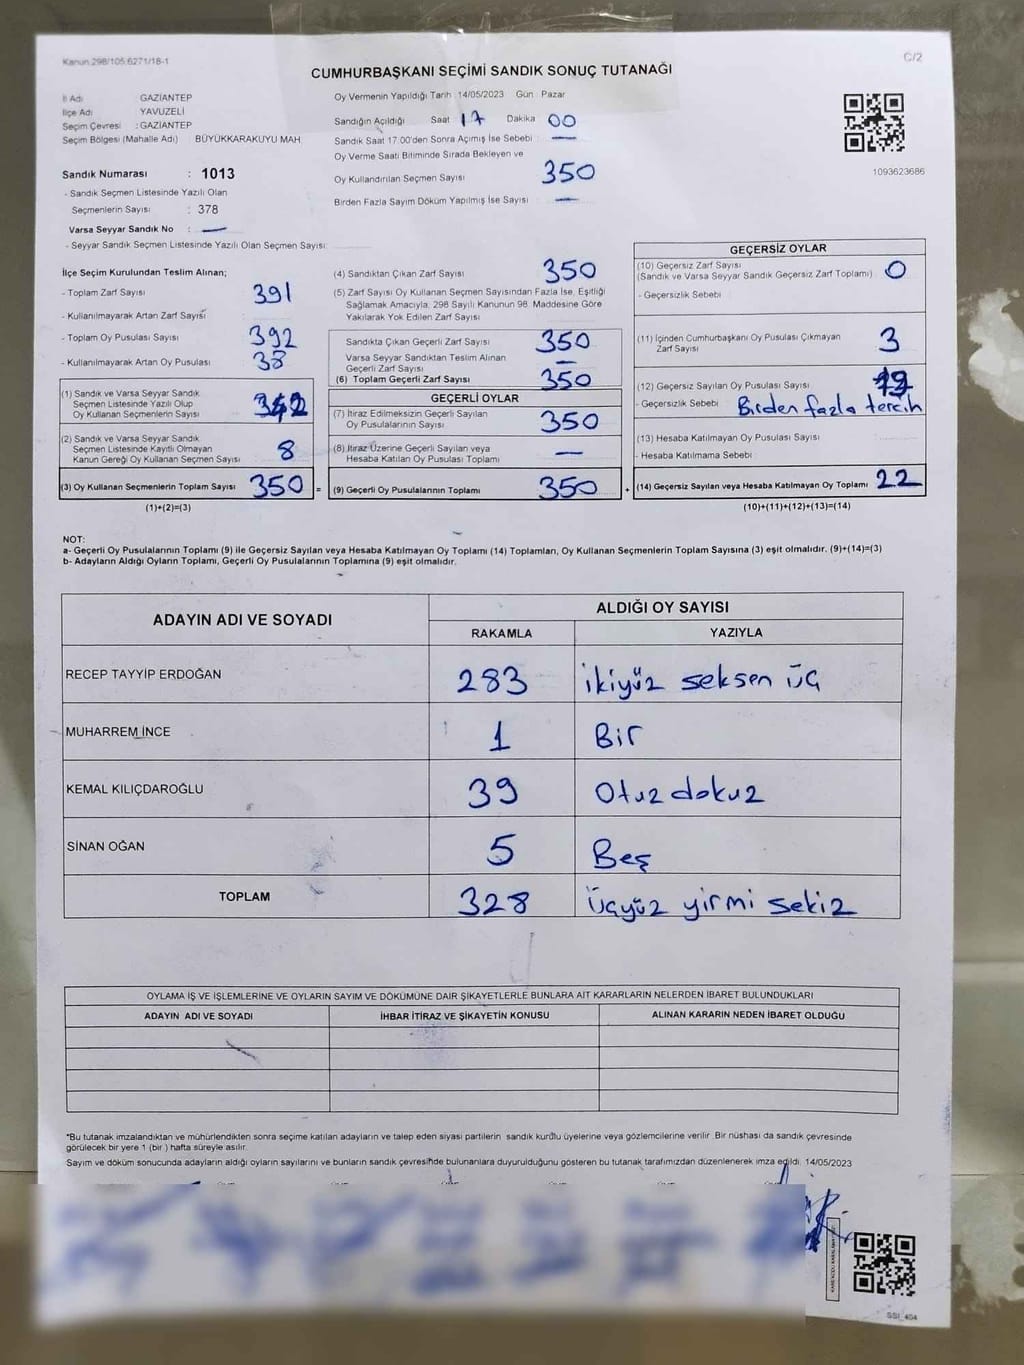 Kanun.298/105.6271/18-1
C/2
CUMHURBAŞKANI SEÇİMİ SANDIK SONUÇ TUTANAĞI
İl Adı : GAZİANTEP
İlçe Adı : YAVUZELİ
Seçim Çevresi : GAZİANTEP
Seçim Bölgesi (Mahalle Adı) BÜYÜKKARAKUYU MAH
Sandık Numarası : 1013
- Sandık Seçmen Listesinde Yazılı Olan
Seçmenlerin Sayısı : 378
Varsa Seyyar Sandık No : —
- Seyyar Sandık Seçmen Listesinde Yazılı Olan Seçmen Sayısı:
Oy Vermenin Yapıldığı Tarih :14/05/2023 Gün : Pazar
Sandığın Açıldığı Saat 17 Dakika 00
Sandık Saat 17.00'den Sonra Açımış İse Sebebi : —
Oy Verme Saati Bitiminde Sırada Bekleyen ve
Oy Kullandırılan Seçmen Sayısı : 350
Birden Fazla Sayım Döküm Yapılmış İse Sayısı : —
1093623686
İlçe Seçim Kurulundan Teslim Alınan;
- Toplam Zarf Sayısı : 391
- Kullanılmayarak Artan Zarf Sayısı :
- Toplam Oy Pusulası Sayısı : 392
- Kullanılmayarak Artan Oy Pusulası : 38
(1) Sandık ve Varsa Seyyar Sandık
Seçmen Listesinde Yazılı Olup
Oy Kullanan Seçmenlerin Sayısı : 342
(2) Sandık ve Varsa Seyyar Sandık
Seçmen Listesinde Kayıtlı Olmayan
Kanun Gereği Oy Kullanan Seçmen Sayısı : 8
(3) Oy Kullanan Seçmenlerin Toplam Sayısı : 350 =
(1)+(2)=(3)
(4) Sandıktan Çıkan Zarf Sayısı : 350
(5) Zarf Sayısı Oy Kullanan Seçmen Sayısından Fazla İse, Eşitliği
Sağlamak Amacıyla, 298 Sayılı Kanunun 98. Maddesine Göre
Yakılarak Yok Edilen Zarf Sayısı :
Sandıkta Çıkan Geçerli Zarf Sayısı : 350
Varsa Seyyar Sandıktan Teslim Alınan
Geçerli Zarf Sayısı : —
(6) Toplam Geçerli Zarf Sayısı : 350
GEÇERLİ OYLAR
(7) İtiraz Edilmeksizin Geçerli Sayılan
Oy Pusulalarının Sayısı : 350
(8) İtiraz Üzerine Geçerli Sayılan veya
Hesaba Katılan Oy Pusulası Toplamı : —
(9) Geçerli Oy Pusulalarının Toplamı : 350 +
GEÇERSİZ OYLAR
(10) Geçersiz Zarf Sayısı
(Sandık ve Varsa Seyyar Sandık Geçersiz Zarf Toplamı) : 0
- Geçersizlik Sebebi :
(11) İçinden Cumhurbaşkanı Oy Pusulası Çıkmayan
Zarf Sayısı : 3
(12) Geçersiz Sayılan Oy Pusulası Sayısı : 19
- Geçersizlik Sebebi : Birden fazla tercih
(13) Hesaba Katılmayan Oy Pusulası Sayısı :
- Hesaba Katılmama Sebebi :
(14) Geçersiz Sayılan veya Hesaba Katılmayan Oy Toplamı : 22
(10)+(11)+(12)+(13)=(14)
NOT:
a- Geçerli Oy Pusulalarının Toplamı (9) ile Geçersiz Sayılan veya Hesaba Katılmayan Oy Toplamı (14) Toplamları, Oy Kullanan Seçmenlerin Toplam Sayısına (3) eşit olmalıdır. (9)+(14)=(3)
b- Adayların Aldığı Oyların Toplamı, Geçerli Oy Pusulalarının Toplamına (9) eşit olmalıdır.
ADAYIN ADI VE SOYADI ALDIĞI OY SAYISI
RAKAMLA YAZIYLA
RECEP TAYYİP ERDOĞAN 283 ikiyüz seksen üç
MUHARREM İNCE 1 Bir
KEMAL KILIÇDAROĞLU 39 Otuz dokuz
SİNAN OĞAN 5 Beş
TOPLAM 328 üçyüz yirmi sekiz
OYLAMA İŞ VE İŞLEMLERİNE VE OYLARIN SAYIM VE DÖKÜMÜNE DAİR ŞİKAYETLERLE BUNLARA AİT KARARLARIN NELERDEN İBARET BULUNDUKLARI
ADAYIN ADI VE SOYADI İHBAR İTİRAZ VE ŞİKAYETİN KONUSU ALINAN KARARIN NEDEN İBARET OLDUĞU
"Bu tutanak imzalandıktan ve mühürlendikten sonra seçime katılan adayların ve talep eden siyasi partilerin sandık kurulu üyelerine veya gözlemcilerine verilir. Bir nüshası da sandık çevresinde
görülecek bir yere 1 (bir ) hafta süreyle asılır.
Sayım ve döküm sonucunda adayların aldığı oyların sayılarını ve bunların sandık çevresinde bulunanlara duyurulduğunu gösteren bu tutanak tarafımızdan düzenlenerek imza edildi. 14/05/2023
SSI_404